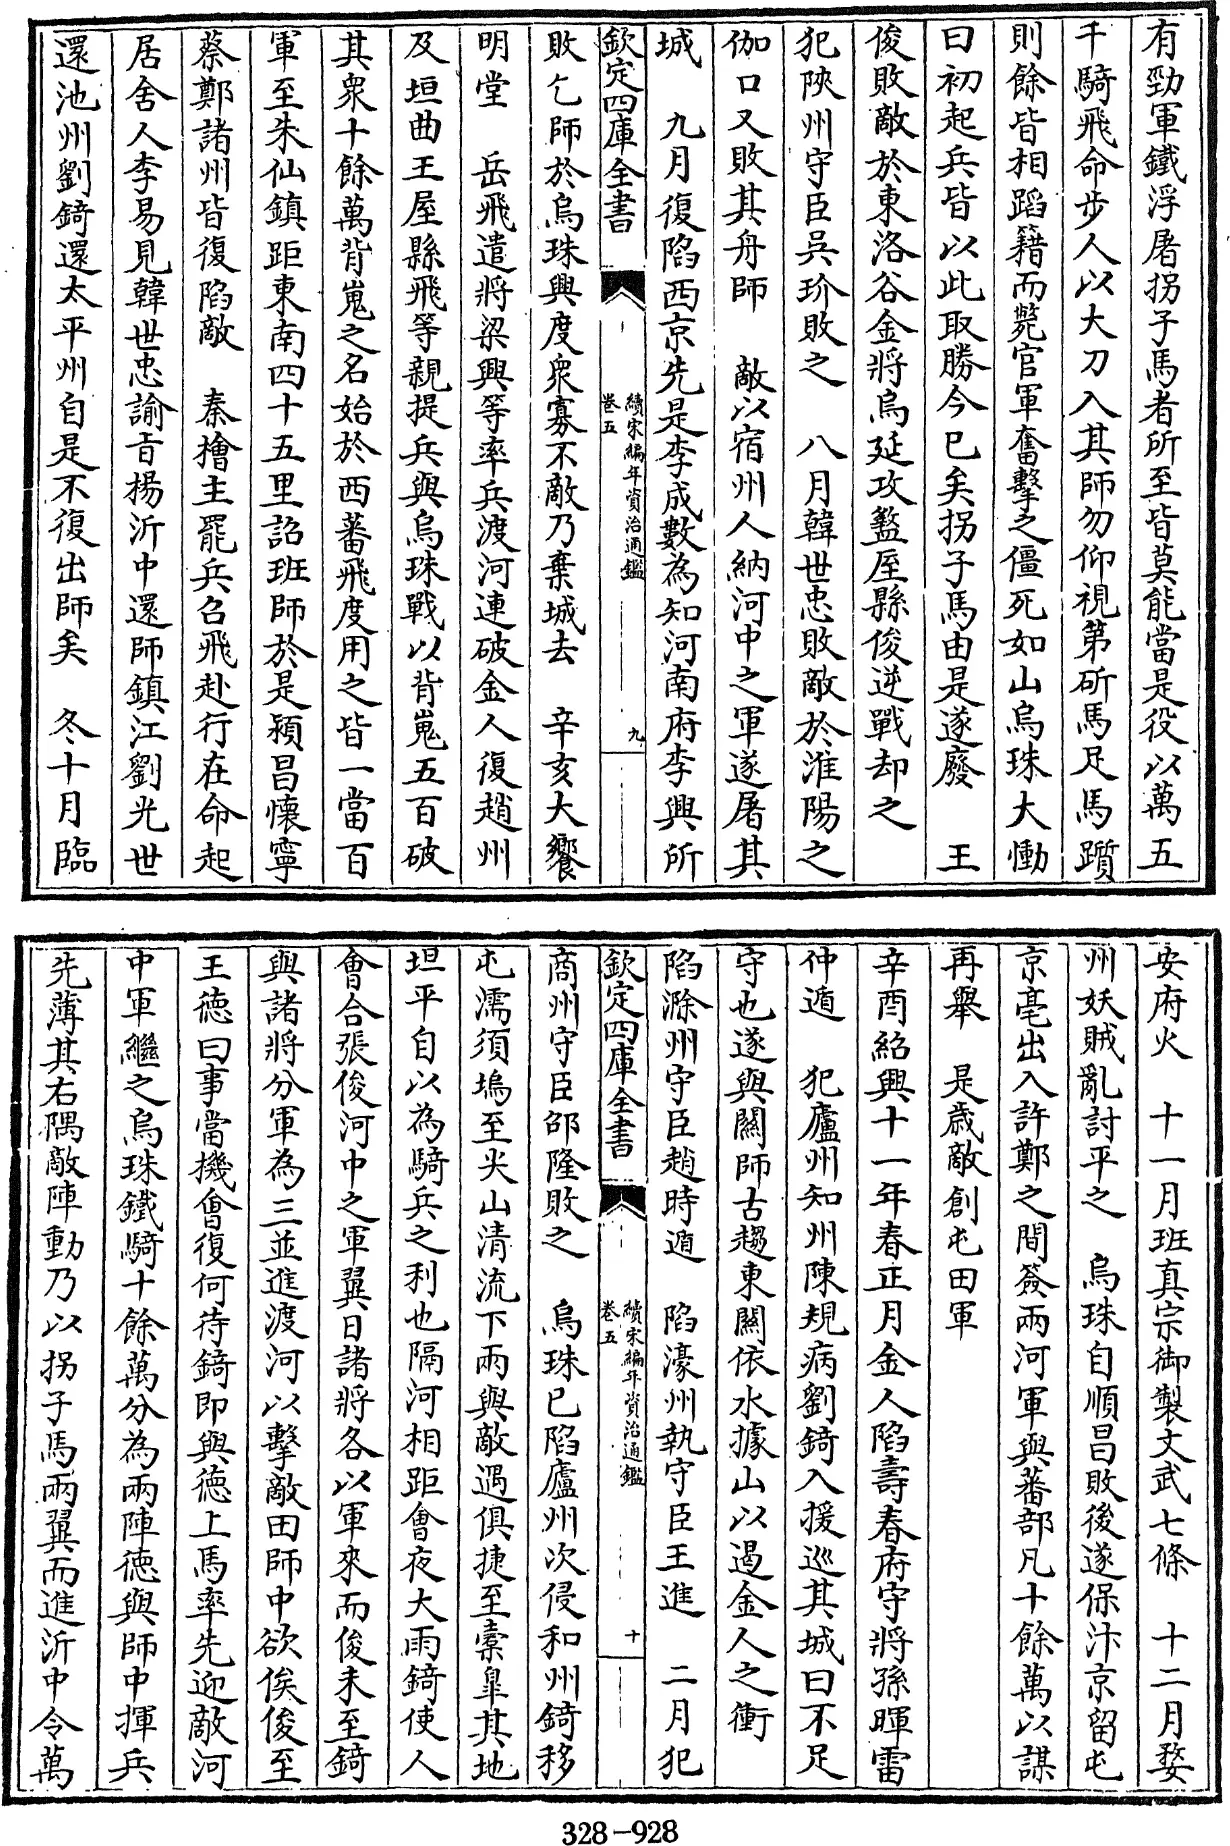 有勁軍鐵浮屠拐子馬者所至皆莫能當是役以萬五
千騎飛命步人以大刀入其師勿仰視第斫馬足馬躓
則餘皆相蹈藉而斃官軍奮擊之僵死如山烏珠大慟
曰初起兵皆以此取勝今已矣拐子馬由是遂廢 王
俊敗敵於東洛谷金將烏延攻盩厔縣俊逆戰却之
犯陝州守臣吳玠敗之 八月韓世忠敗敵於淮陽之
伽口又敗其舟師 敵以宿州人納河中之軍遂屠其
城 九月復陷西京先是李成數為知河南府李興所
欽定四庫全書 續宋編年資治通鑑 卷五 九
敗乞師於烏珠興度衆寡不敵乃棄城去 辛亥大饗
明堂 岳飛遣將梁興等率兵渡河連破金人復趙州
及垣曲王屋縣飛等親提兵與烏珠戰以背嵬五百破
其衆十餘萬背嵬之名始於西蕃飛度用之皆一當百
軍至朱仙鎮距東南四十五里詔班師於是潁昌懷寧
蔡鄭諸州皆復陷敵 秦檜主罷兵召飛赴行在命起
居舍人李易見韓世忠諭旨楊沂中還師鎮江劉光世
還池州劉錡還太平州自是不復出師矣 冬十月臨
安府火 十一月班真宗御製文武七條 十二月婺
州妖賊亂討平之 烏珠自順昌敗後遂保汴京留屯
京亳出入許鄭之間簽兩河軍與蕃部凡十餘萬以謀
再舉 是歲敵創屯田軍
辛酉紹興十一年春正月金人陷壽春府守將孫暉雷
仲遁 犯廬州知州陳規病劉錡入援巡其城曰不足
守也遂與關師古趨東關依水據山以遏金人之衝
陷滁州守臣趙時遁 陷濠州執守臣王進 二月犯
欽定四庫全書 續宋編年資治通鑑 卷五 十
商州守臣邵隆敗之 烏珠已陷廬州次侵和州錡移
屯濡須塢至尖山清流下兩與敵遇俱捷至橐皐其地
坦平自以為騎兵之利也隔河相距會夜大雨錡使人
會合張俊河中之軍翼日諸將各以軍來而俊未至錡
與諸將分軍為三並進渡河以擊敵田師中欲俟俊至
王德曰事當機會復何待錡即與德上馬率先迎敵河
中軍繼之烏珠鐵騎十餘萬分為兩陣德與師中揮兵
先薄其右隅敵陣動乃以拐子馬兩翼而進沂中令萬
328-928